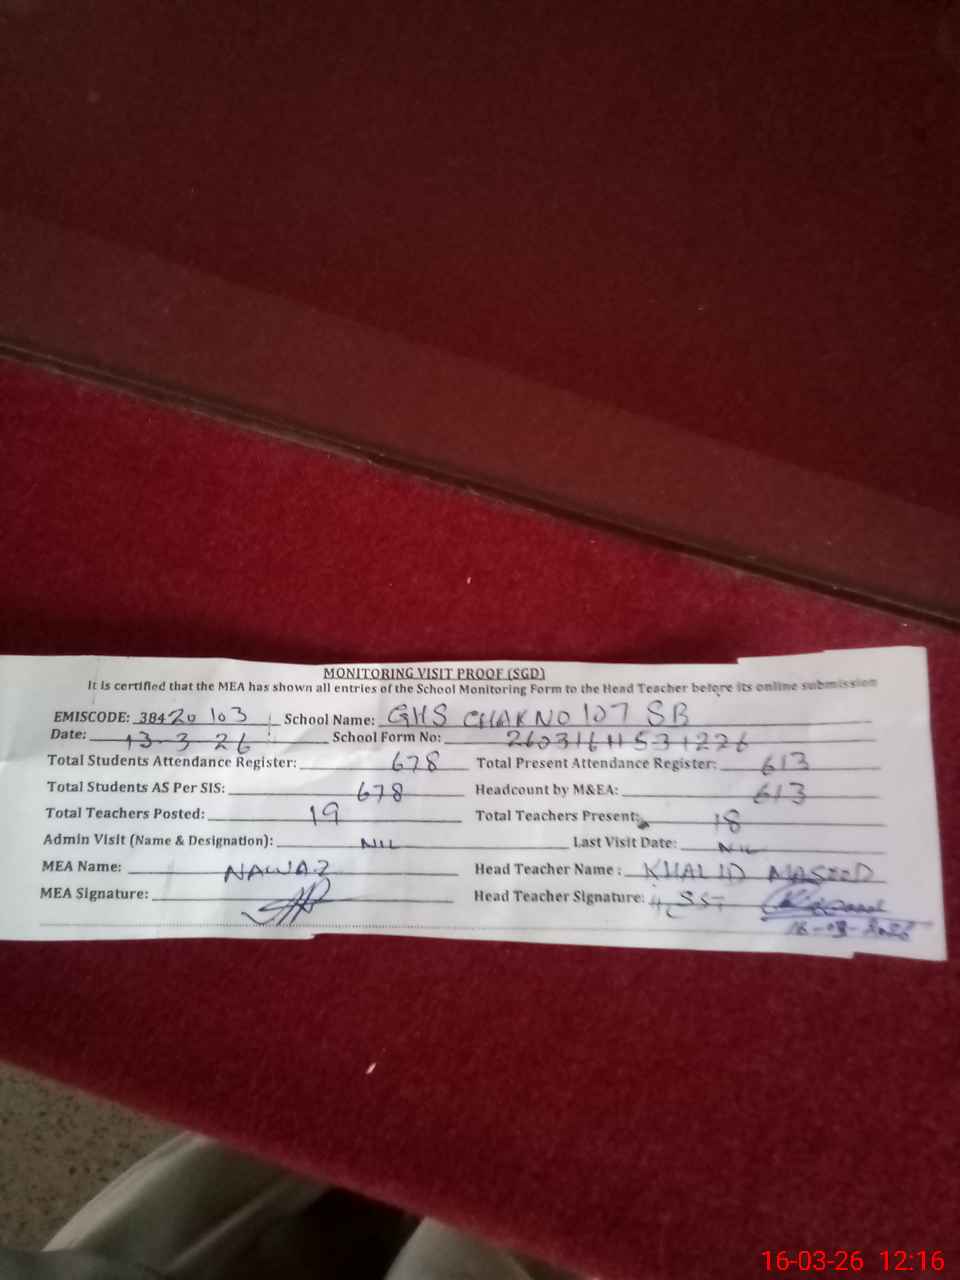 MONITORING VISIT PROOF (SGD)
It is certified that the MEA has shown all entries of the School Monitoring Form to the Head Teacher before its online submission
EMISCODE: 38420103 School Name: GHS CHAK NO 107 SB
Date: 13-3-26 School Form No:
Total Students Attendance Register: 678 Total Present Attendance Register: 613
Total Students AS Per SIS: 678 Headcount by M&EA: 613
Total Teachers Posted: 19 Total Teachers Present: 18
Admin Visit (Name & Designation): NIL Last Visit Date: NIL
MEA Name: NAWAZ Head Teacher Name: KHALID MASOOD
MEA Signature: Head Teacher Signature: SST
16-03-2026
16-03-26 12:16